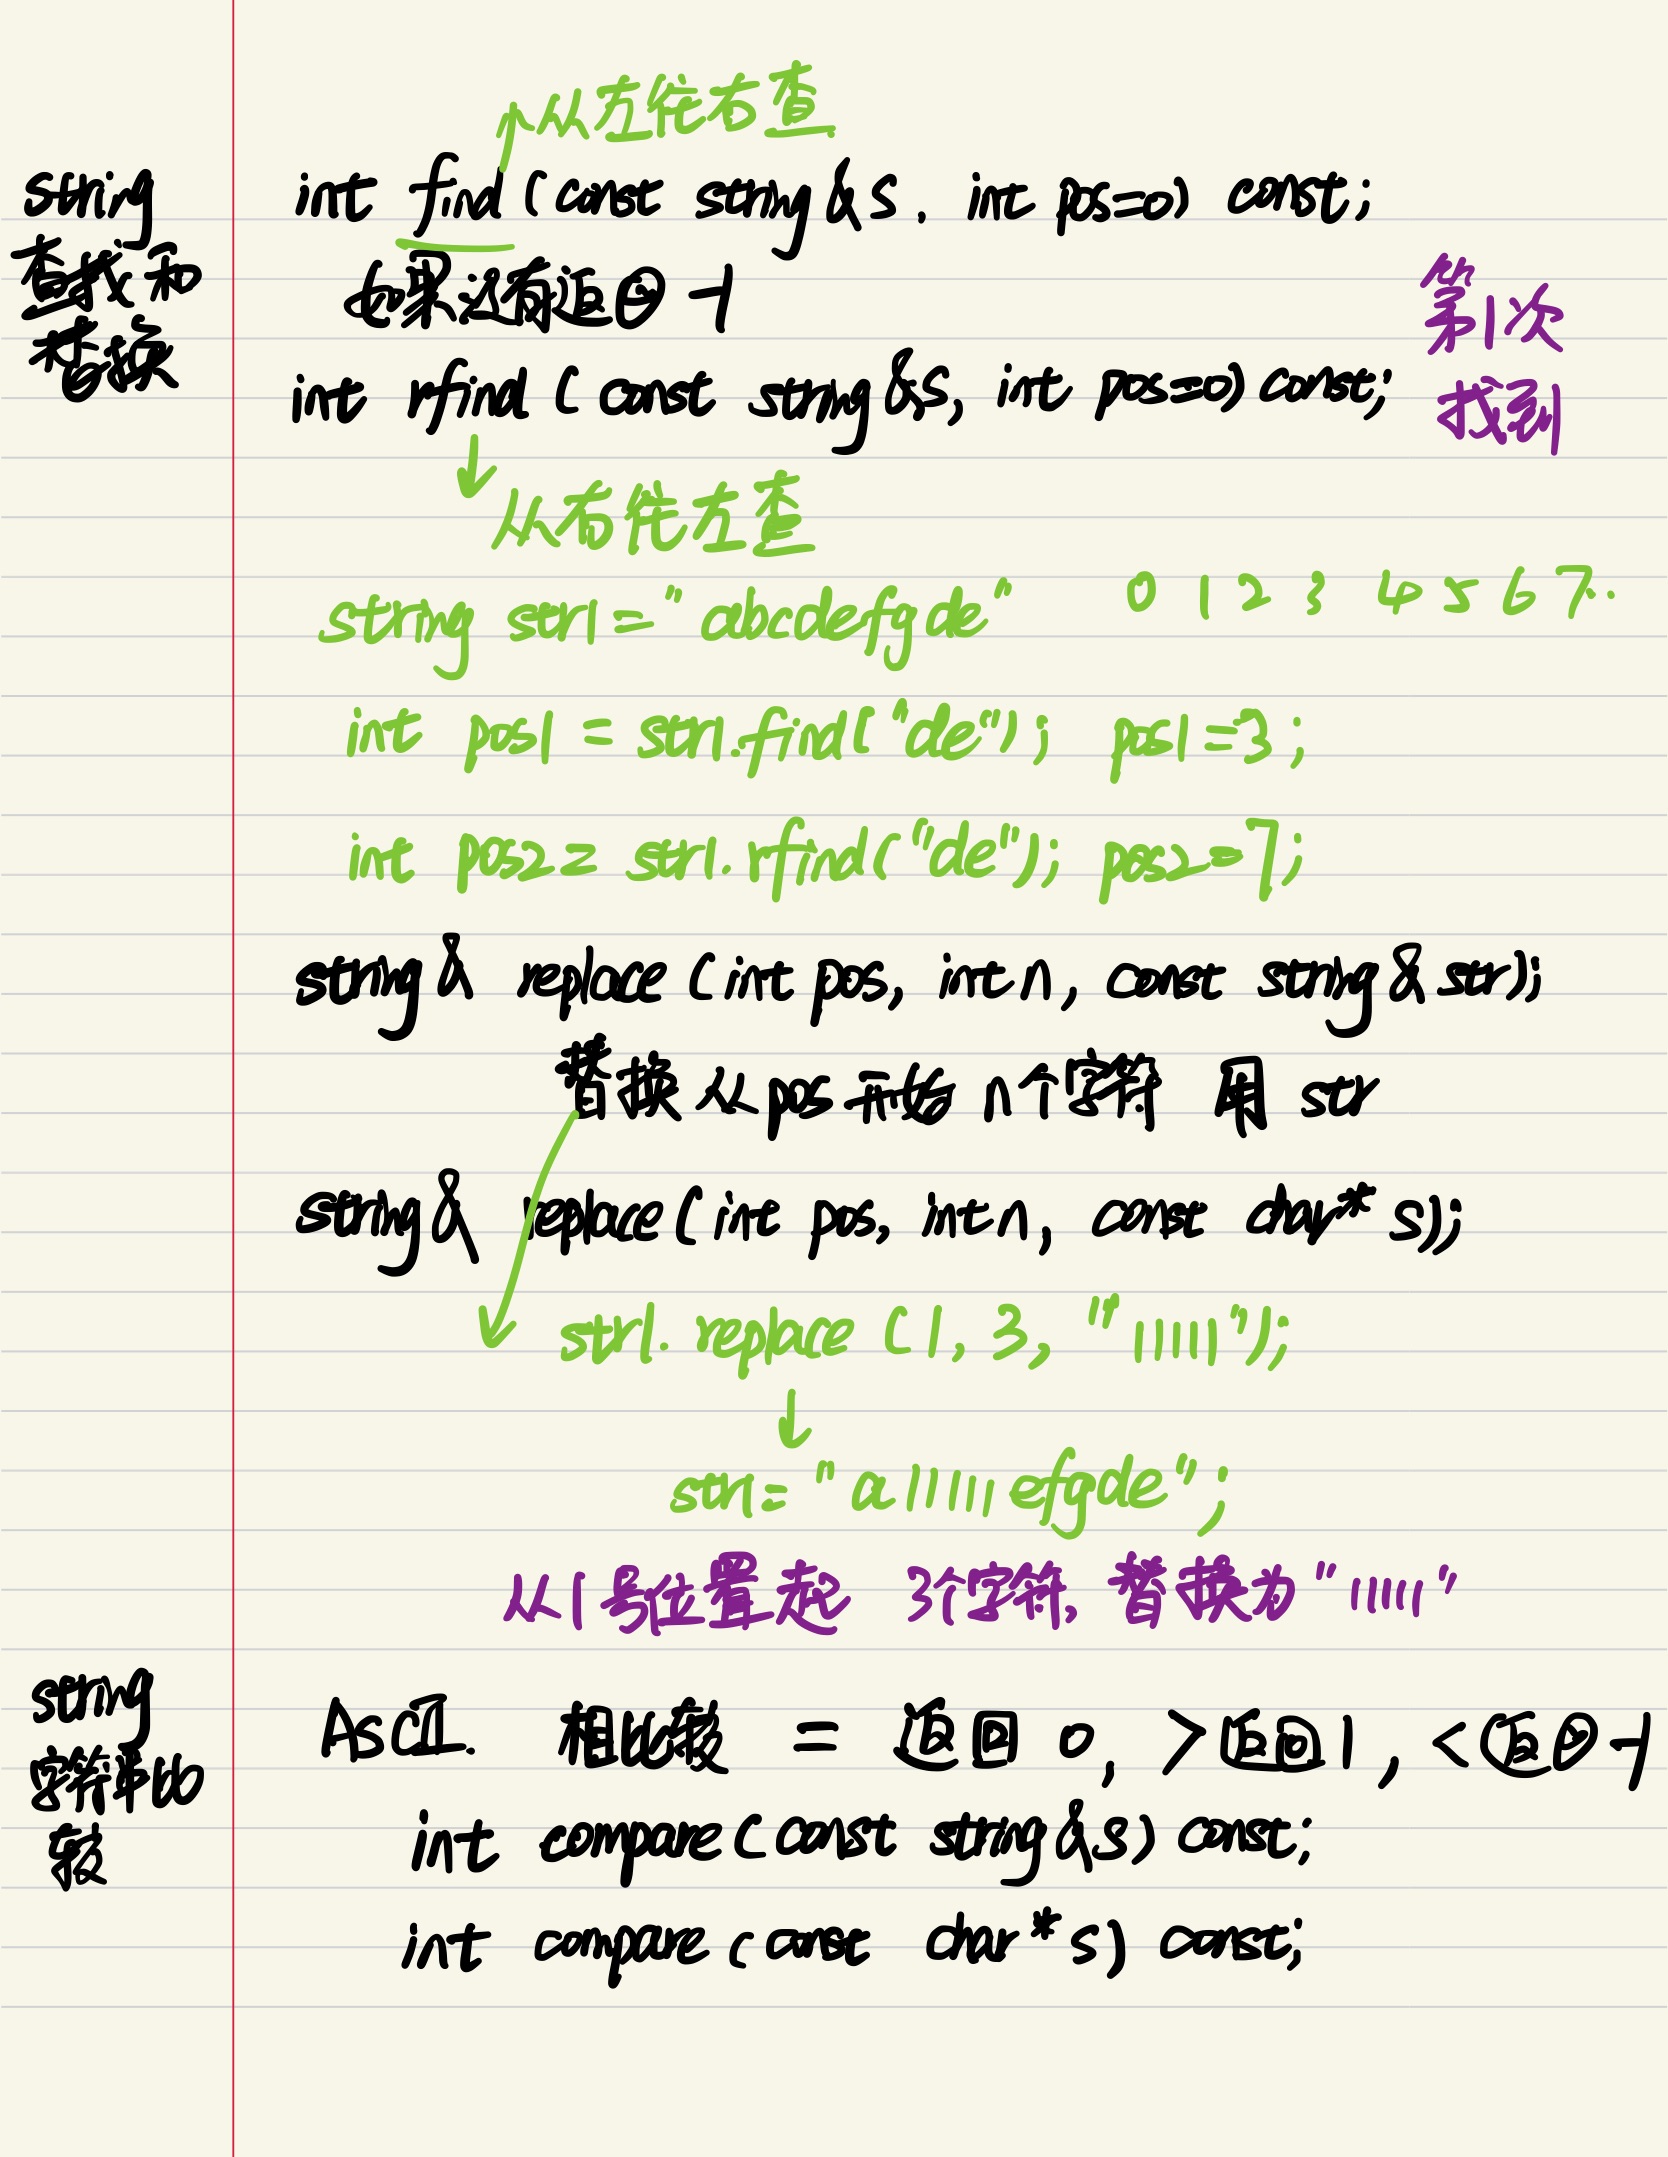 从左往右查
string
查找和
替换
int find (const string &s, int pos=0) const;
如果没有返回 -1
第1次
找到
int rfind (const string &s, int pos=0) const;
从右往左查
string str1 = "abcdefgde" 0 1 2 3 4 5 6 7..
int pos1 = str1.find("de"); pos1=3;
int pos2 = str1.rfind("de"); pos2=7;
string& replace (int pos, int n, const string & str);
替换从pos开始 n个字符 用 str
string& replace (int pos, int n, const char* s);
str1.replace (1, 3, "11111");
str1= "a11111efgde";
从1号位置起 3个字符, 替换为"11111"
string
字符串比
较
ASCII 相比较 = 返回 0, >返回1, <返回-1
int compare (const string &s) const;
int compare (const char* s) const;